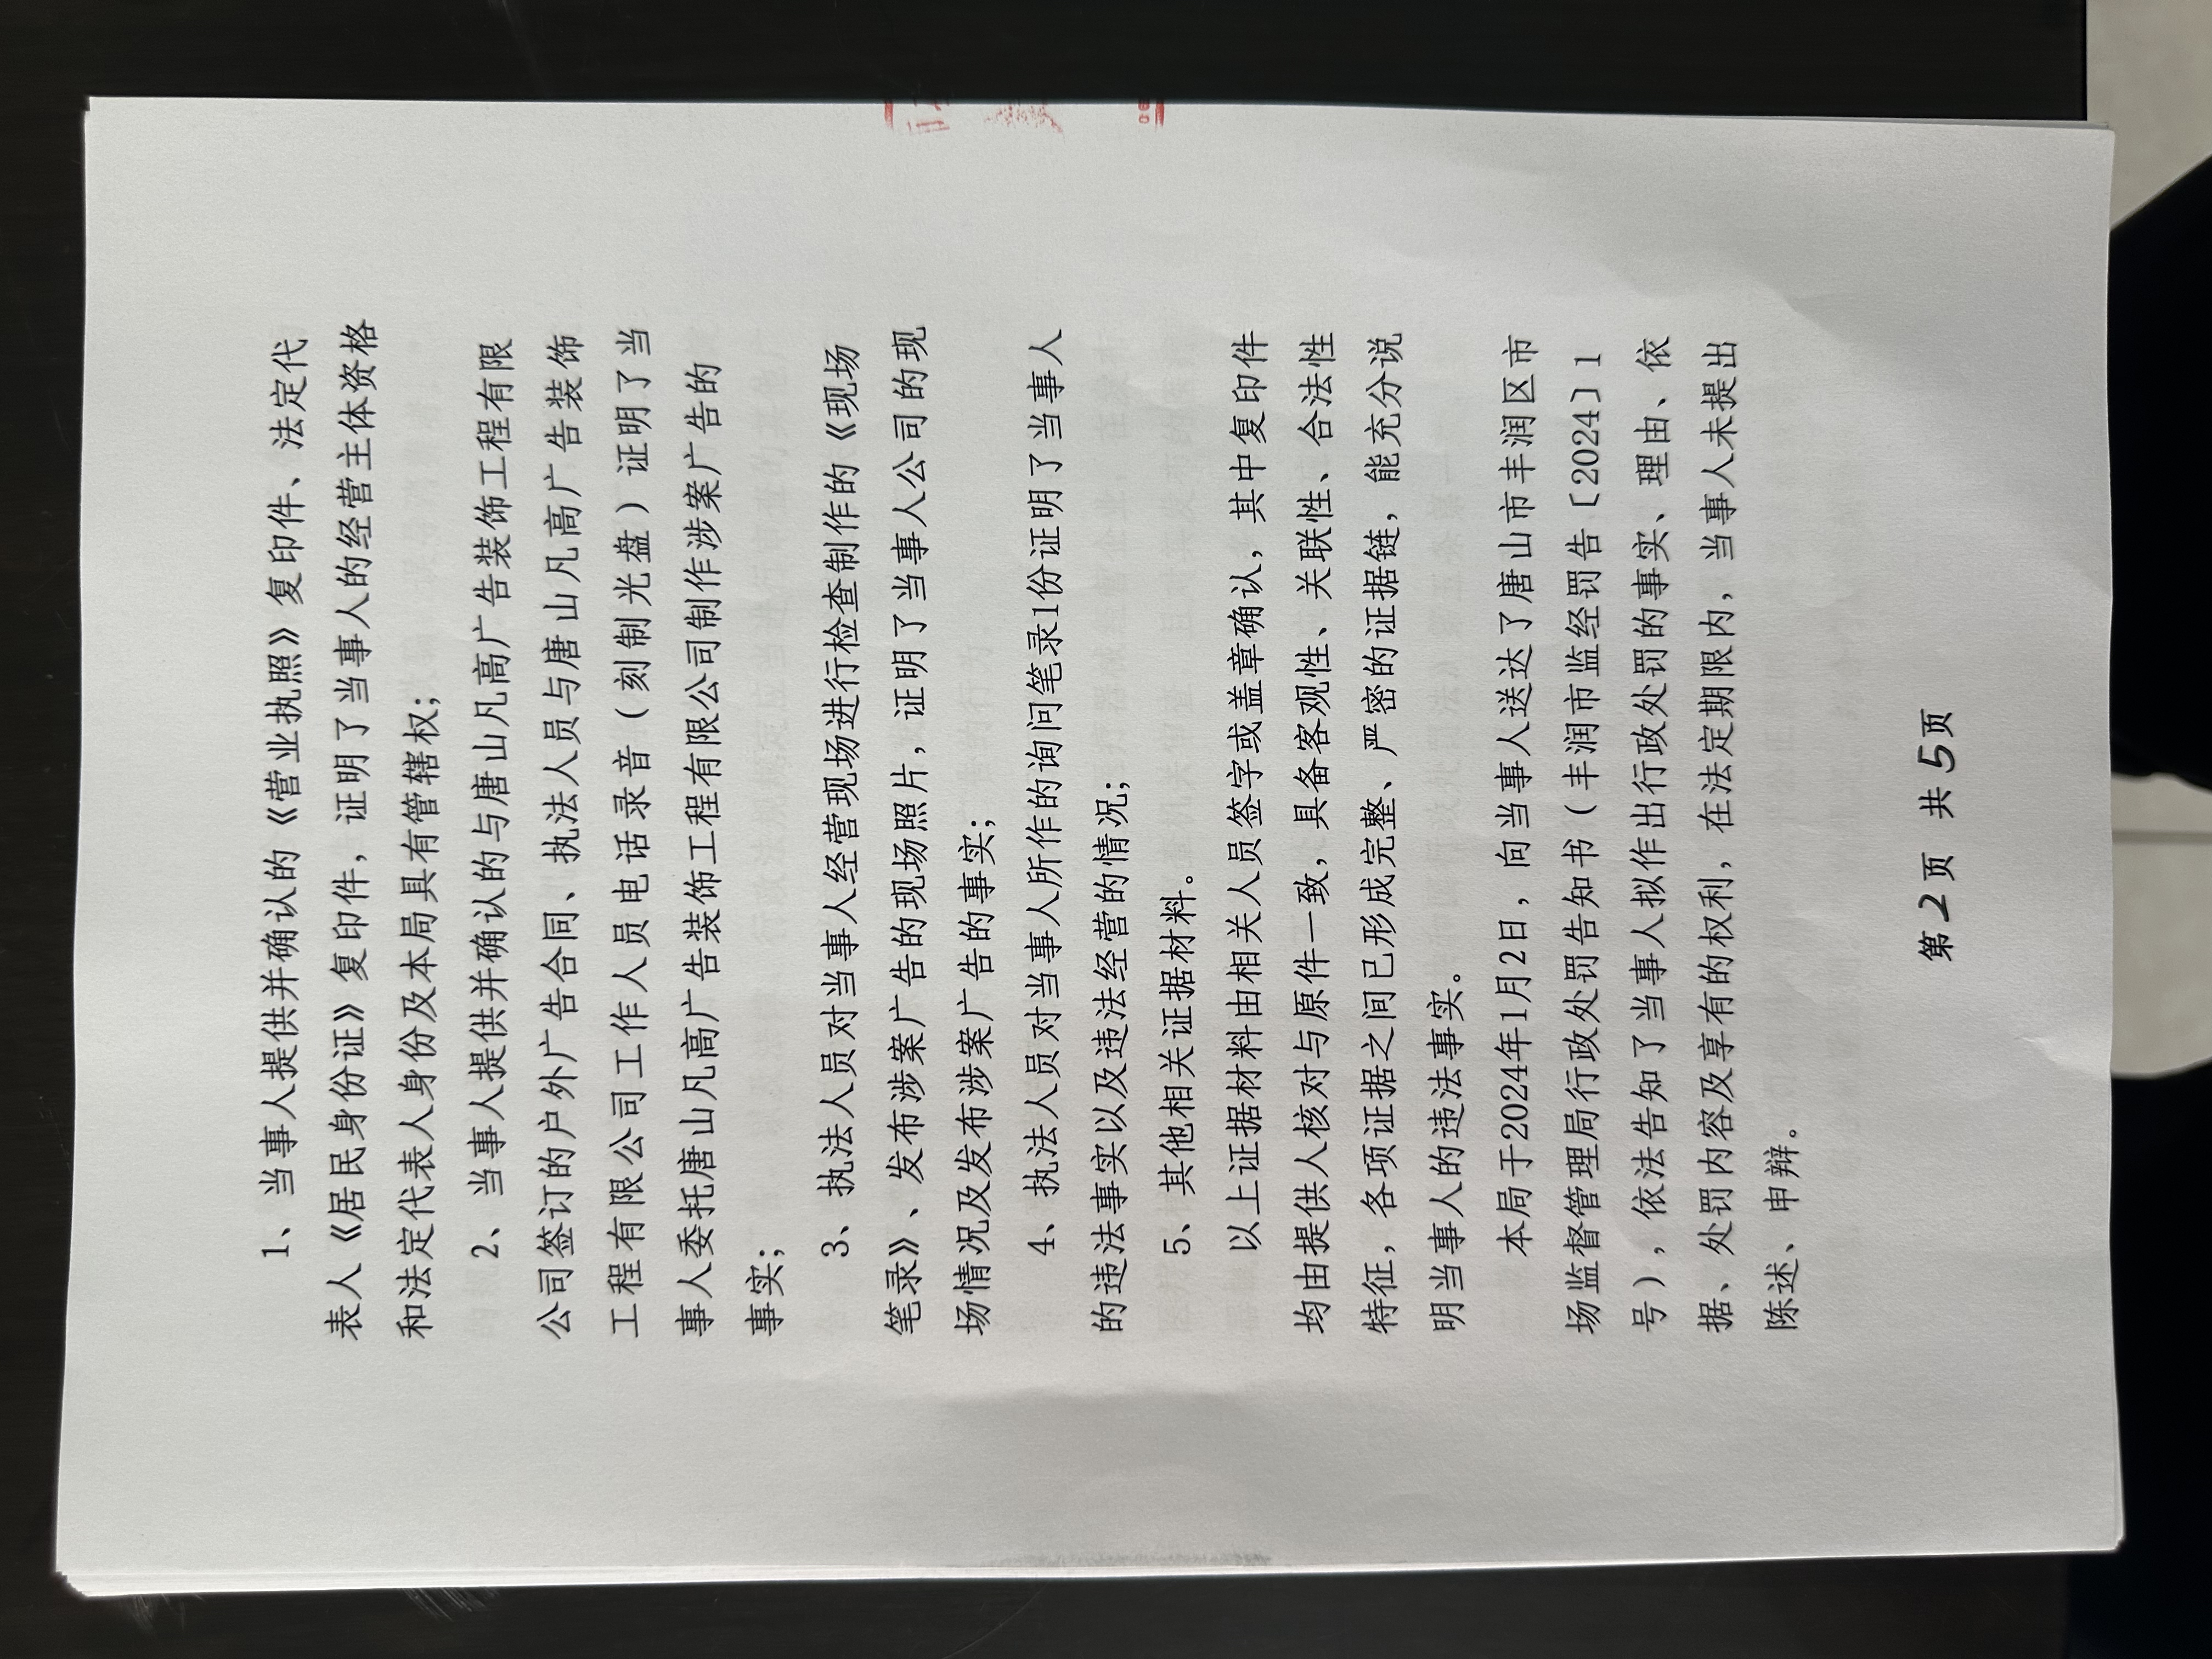 1、当事人提供并确认的《营业执照》复印件、法定代
表人《居民身份证》复印件，证明了当事人的经营主体资格
和法定代表人身份及本局具有管辖权；
2、当事人提供并确认的与唐山凡高广告装饰工程有限
公司签订的户外广告合同、执法人员与唐山凡高广告装饰
工程有限公司工作人员电话录音（刻制光盘）证明了当
事人委托唐山凡高广告装饰工程有限公司制作涉案广告的
事实；
3、执法人员对当事人经营现场进行检查制作的《现场
笔录》、发布涉案广告的现场照片，证明了当事人公司的现
场情况及发布涉案广告的事实；
4、执法人员对当事人所作的询问笔录1份证明了当事人
的违法事实以及违法经营的情况；
5、其他相关证据材料。
以上证据材料由相关人员签字或盖章确认，其中复印件
均由提供人核对与原件一致，具备客观性、关联性、合法性
特征，各项证据之间已形成完整、严密的证据链，能充分说
明当事人的违法事实。
本局于2024年1月2日，向当事人送达了唐山市丰润区市
场监督管理局行政处罚告知书（丰润市监经罚告〔2024〕1
号），依法告知了当事人拟作出行政处罚的事实、理由、依
据、处罚内容及享有的权利，在法定期限内，当事人未提出
陈述、申辩。
第2页 共5页